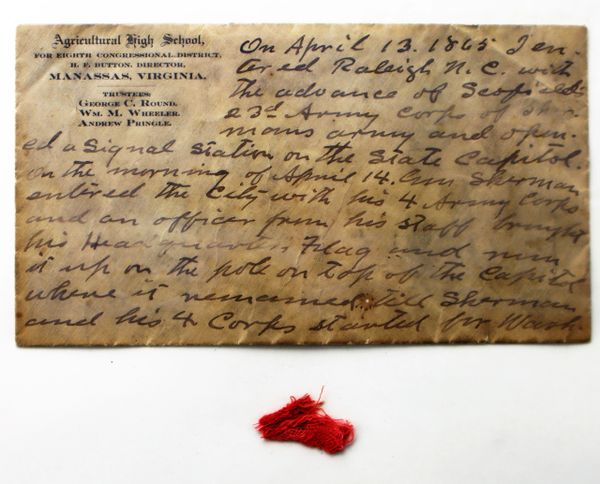 Agricultural High School,
FOR EIGHTH CONGRESSIONAL DISTRICT,
H. F. BUTTON, DIRECTOR,
MANASSAS, VIRGINIA.
TRUSTEES:
GEORGE C. ROUND.
WM. M. WHEELER.
ANDREW PRINGLE.
On April 13. 1865 I en-
tered Raleigh N.C. with
the advance of
3d Army Corps of Sher-
mans army and open-
ed a Signal Station on the State Capitol.
On the morning of April 14. Gen Sherman
entered the City with his 4 Army Corps
and an officer from his staff brought
his Headquarters Flag and run
it up on the pole on top of the Capitol
where it remained till Sherman
and his 4 Corps started for Wash-